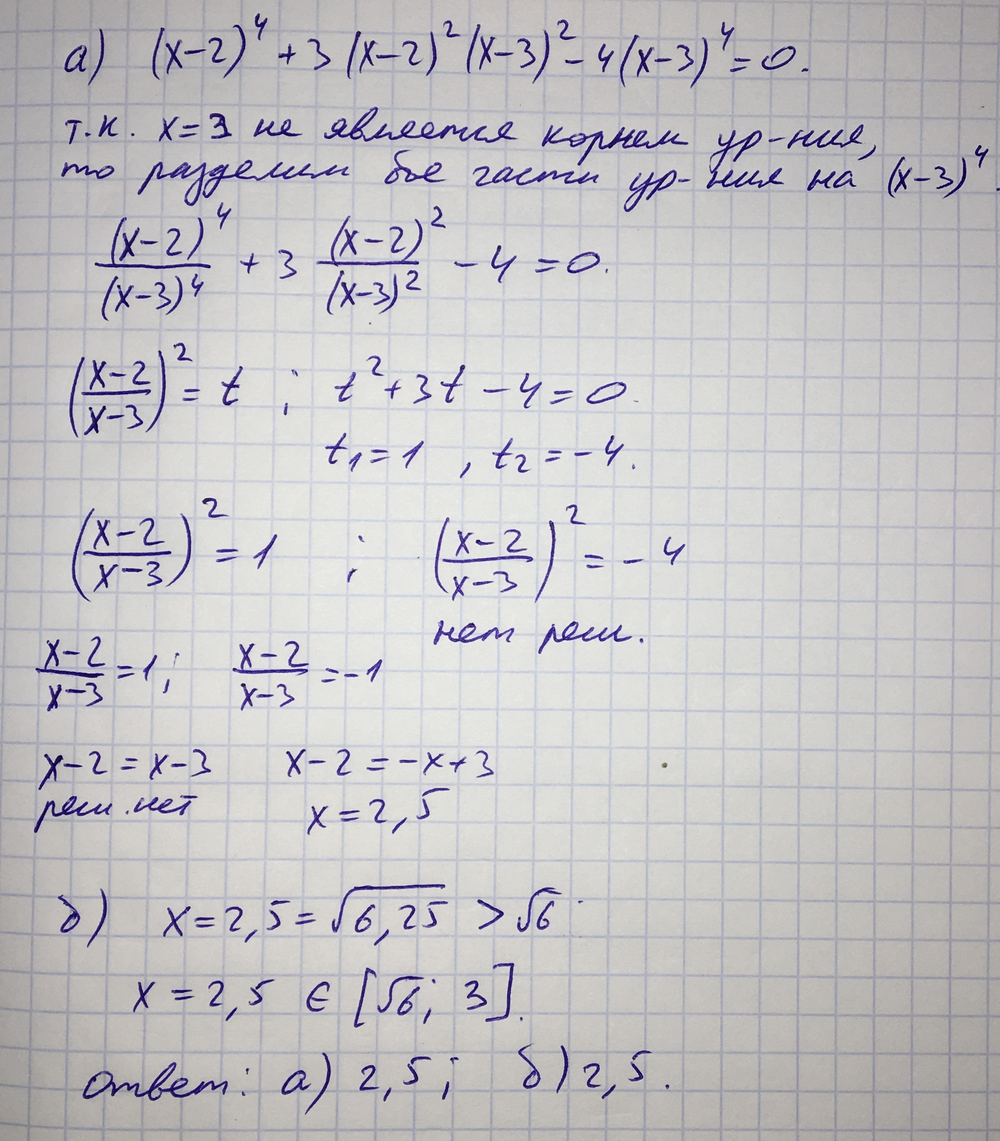 а) (x-2)⁴ + 3(x-2)²(x-3)² - 4(x-3)⁴ = 0.
т.к. x=3 не является корнем ур-ния,
то разделим обе части ур-ния на (x-3)⁴.
(x-2)⁴/(x-3)⁴ + 3 (x-2)²/(x-3)² - 4 = 0.
((x-2)/(x-3))² = t ; t² + 3t - 4 = 0.
t₁ = 1 , t₂ = -4.
((x-2)/(x-3))² = 1 ; ((x-2)/(x-3))² = -4
нет реш.
(x-2)/(x-3) = 1 ; (x-2)/(x-3) = -1
x-2 = x-3 x-2 = -x+3
реш. нет x = 2,5
б) x = 2,5 = √6,25 > √6
x = 2,5 ∈ [√6; 3].
ответ: а) 2,5; б) 2,5.